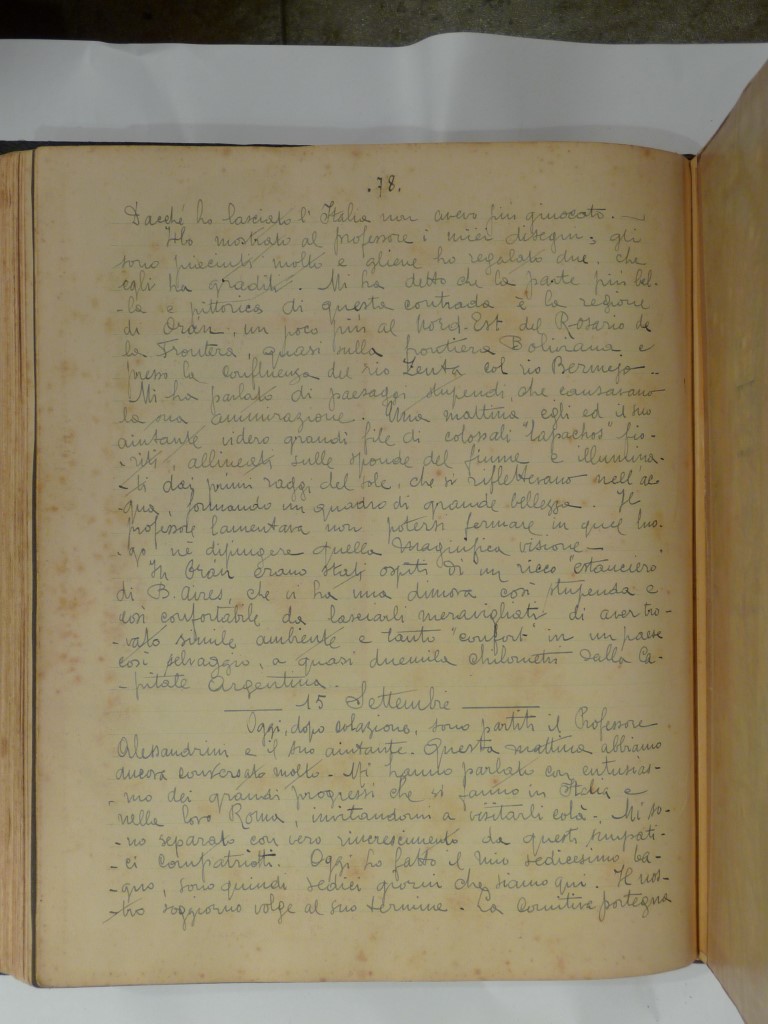 .78.
Dacché ho lasciato l'Italia non avevo più giuocato. —
Ho mostrato al professore i miei disegni, gli
sono piaciuti molto e gliene ho regalato due. che
egli ha graditi. Mi ha detto che la parte più bel-
-la e pittorica di questa contrada è la regione
di Orán, un poco più al Nord-Est del Rosario de
la Frontera, quasi sulla frontiera Boliviana e
presso la confluenza del rio Zenta col rio Bermejo..
Mi ha parlato di paesaggi stupendi, che causavano
la sua ammirazione. Una mattina, egli ed il suo
aiutante videro grandi file di colossali "lapachos" fio-
-riti, allineati sulle sponde del fiume e illumina-
-ti dai primi raggi del sole, che si riflettevano nell'ac-
-qua, formando un quadro di grande bellezza. Il
professore lamentava non potersi fermare in quel luo-
-go nè dipingere quella magnifica visione—
In Orán erano stati ospiti di un ricco "estanciero"
di B. Aires, che vi ha una dimora così stupenda e
così confortabile da lasciarli meravigliati di aver tro-
-vato simile ambiente e tanto "confort" in un paese
così selvaggio, a quasi duemila chilometri dalla Ca-
-pitale Argentina.
15 Settembre
Oggi, dopo colazione, sono partiti il Professore
Alessandrini e il suo aiutante. Questa mattina abbiamo
ancora conversato molto - Mi hanno parlato con entusias-
-mo dei grandi progressi che si fanno in Italia e
nella loro Roma, invitandomi a visitarli colà. Mi so-
-no separato con vero rincrescimento da questi simpati-
-ci compatriotti. Oggi ho fatto il mio sedicesimo ba-
-gno, sono quindi sedici giorni che siamo qui. Il nos-
-tro soggiorno volge al suo termine. La comitiva portegna